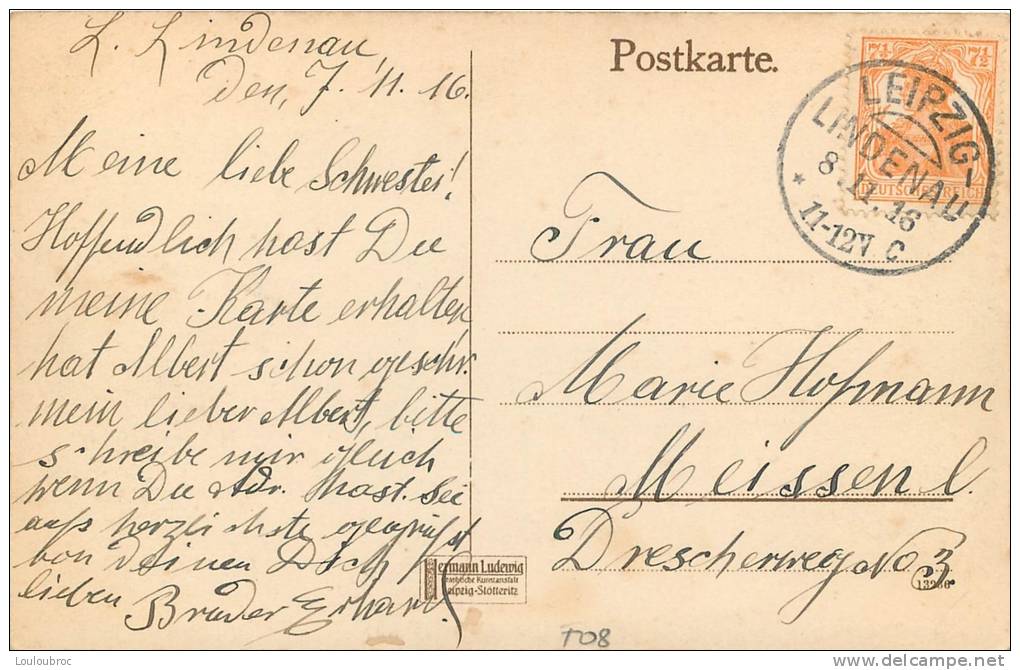 L. Lindenau,
den, 7. 11. 16.
Meine liebe Schwester!
Hoffendlich hast Du
meine Karte erhalten
hat Albert schon geschr.
mein lieber Albert, bitte
schreibe mir gleich
wenn Du Adr. hast. Sei
aufs herzlichste gegrüßt
von Deinen Dich
lieben Bruder Erhard
Postkarte.
7½ 7½
DEUTSCHES REICH
LEIPZIG-
LINDENAU
8.11.16
* 11-12V. C
Frau
Marie Hofmann
Meissen l.
Drescherweg No 3
Hermann Ludewig
Graphische Kunstanstalt
Leipzig-Stötteritz
13236
T08
Louloubroc
delcampe.net